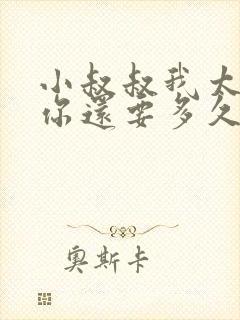 小叔叔我太
你還要多久
奧斯卡